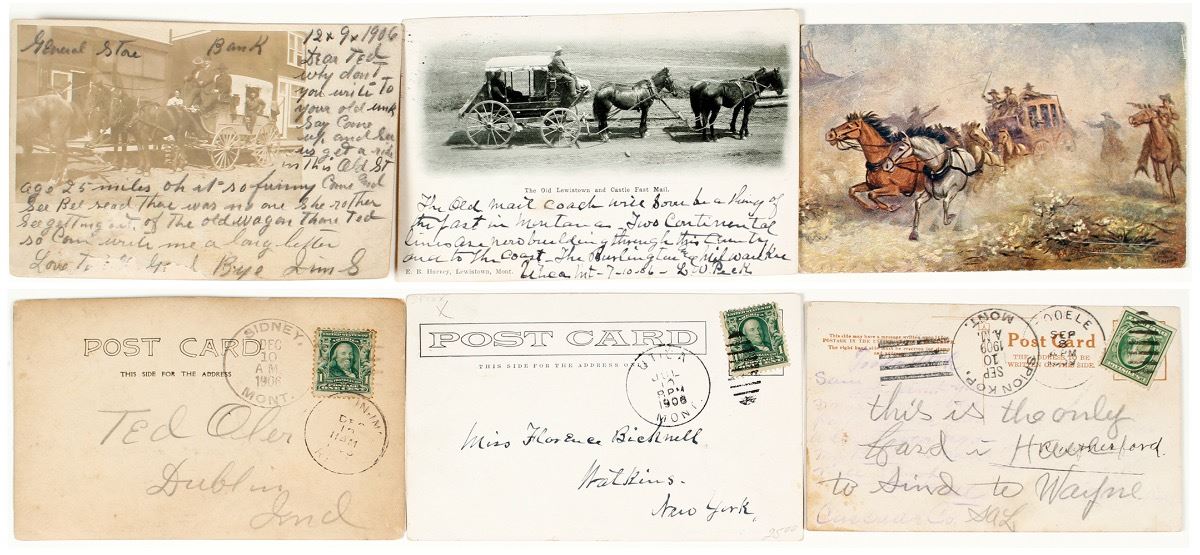 General Store Bank 12 x 9 x 1906
Dear Ted
why don't
you write to
your old unk
Say Come
up and See
us get a ride
in this Old St
age 25 miles oh it so funny Come and
See Bel read there was no one She rother
See getting out of the old wagon than Ted
so Com write me a long letter
Love To all Good Bye Jim S
The Old Lewistown and Castle Fast Mail.
The Old mail coach will soon be a thing of
the past in Montana as Two Continental
lines are now building through this Country
over to the Coast - The Burlington & Milwaukee
E. B. Harvey, Lewistown, Mont. Utica Mt - 7-10-06 - L W Peck
POST CARD
THIS SIDE FOR THE ADDRESS
SIDNEY,
DEC
10
A.M.
1906
MONT.
DEC
11 AM
Ted Oler
Dublin
Ind
X
POST CARD
THIS SIDE FOR THE ADDRESS
UTICA
JUL
8 PM
1906
MONT.
Miss Florence Bicknell
Watkins.
New York.
2500
This side may
The right half
Post Card
THE ADDRESS TO BE
WRITTEN ON THIS SIDE.
SEP
10
A.M.
1908
MONT.
SPION KOP,
SEP
PM
this is the only
Card i Have
Rutherford.
to Sind to Wayne
Cascade Co.